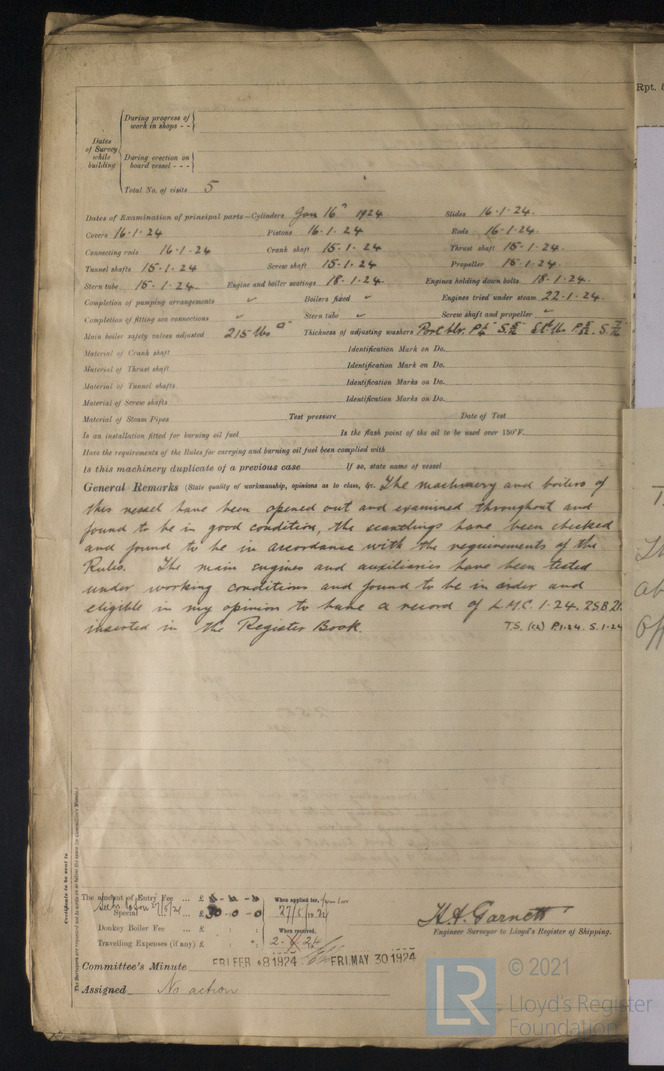 Rpt.
During progress of work in shops - -
Dates of Survey while building
During erection on board vessel - - -
Total No. of visits 5
Dates of Examination of principal parts—Cylinders Jan 16th 1924 Slides 16-1-24.
Covers 16-1-24 Pistons 16-1-24 Rods 16-1-24.
Connecting rods 16-1-24 Crank shaft 15-1-24 Thrust shaft 15-1-24.
Tunnel shafts 15-1-24 Screw shaft 15-1-24 Propeller 15-1-24.
Stern tube 15-1-24. Engine and boiler seatings 18-1-24. Engines holding down bolts 18-1-24.
Completion of pumping arrangements ✓ Boilers fixed ✓ Engines tried under steam 22-1-24.
Completion of fitting sea connections ✓ Stern tube ✓ Screw shaft and propeller ✓
Main boiler safety valves adjusted 215 lbs Thickness of adjusting washers Port blr.
Material of Crank shaft Identification Mark on Do.
Material of Thrust shaft Identification Mark on Do.
Material of Tunnel shafts Identification Marks on Do.
Material of Screw shafts Identification Marks on Do.
Material of Steam Pipes Test pressure Date of Test
Is an installation fitted for burning oil fuel Is the flash point of the oil to be used over 150°F.
Have the requirements of the Rules for carrying and burning oil fuel been complied with
Is this machinery duplicate of a previous case If so, state name of vessel
General Remarks (State quality of workmanship, opinions as to class, &c. The machinery and boilers of
this vessel have been opened out and examined throughout and
found to be in good condition, the scantlings have been checked
and found to be in accordance with the requirements of the
Rules. The main engines and auxiliaries have been tested
under working conditions and found to be in order and
eligible in my opinion to have a record of L.M.C. 1-24. 2SB 21.
inserted in the Register Book. T.S. (CL) P.1-24. S.1-24
Certificate to be sent to
The amount of Entry Fee ... £ When applied for,
Special ... £ 30-0-0 27/5/1924
Donkey Boiler Fee ... £ When received,
Travelling Expenses (if any) £ 24
H.A. Garnett
Engineer Surveyor to Lloyd's Register of Shipping.
Committee's Minute FRI. FEB -8 1924 FRI. MAY. 30 1924
Assigned No action
LR © 2021
Lloyd's Register
Foundation